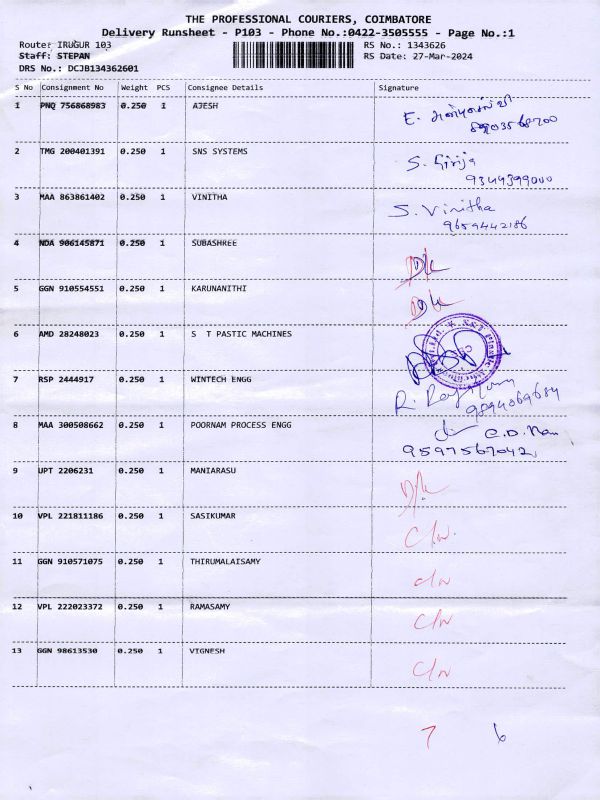 THE PROFESSIONAL COURIERS, COIMBATORE
Delivery Runsheet - P103 - Phone No.:0422-3505555 - Page No.:1
Route: IRUGUR 103 RS No.: 1343626
Staff: STEPAN RS Date: 27-Mar-2024
DRS No.: DCJB134362601
S No Consignment No Weight PCS Consignee Details Signature
1 PNQ 756868983 0.250 1 AJESH E.
2 TMG 200401391 0.250 1 SNS SYSTEMS S. Girija
9344399000
3 MAA 863861402 0.250 1 VINITHA S. Vinitha
9659442186
4 NDA 906145871 0.250 1 SUBASHREE D/L
5 GGN 910554551 0.250 1 KARUNANITHI D/L
6 AMD 28248023 0.250 1 S T PASTIC MACHINES
7 RSP 2444917 0.250 1 WINTECH ENGG R.
9894069684
8 MAA 300508662 0.250 1 POORNAM PROCESS ENGG
9597567042
9 UPT 2206231 0.250 1 MANIARASU D/L
10 VPL 221811186 0.250 1 SASIKUMAR C/N
11 GGN 910571075 0.250 1 THIRUMALAISAMY C/N
12 VPL 222023372 0.250 1 RAMASAMY C/N
13 GGN 98613530 0.250 1 VIGNESH C/N
7 6